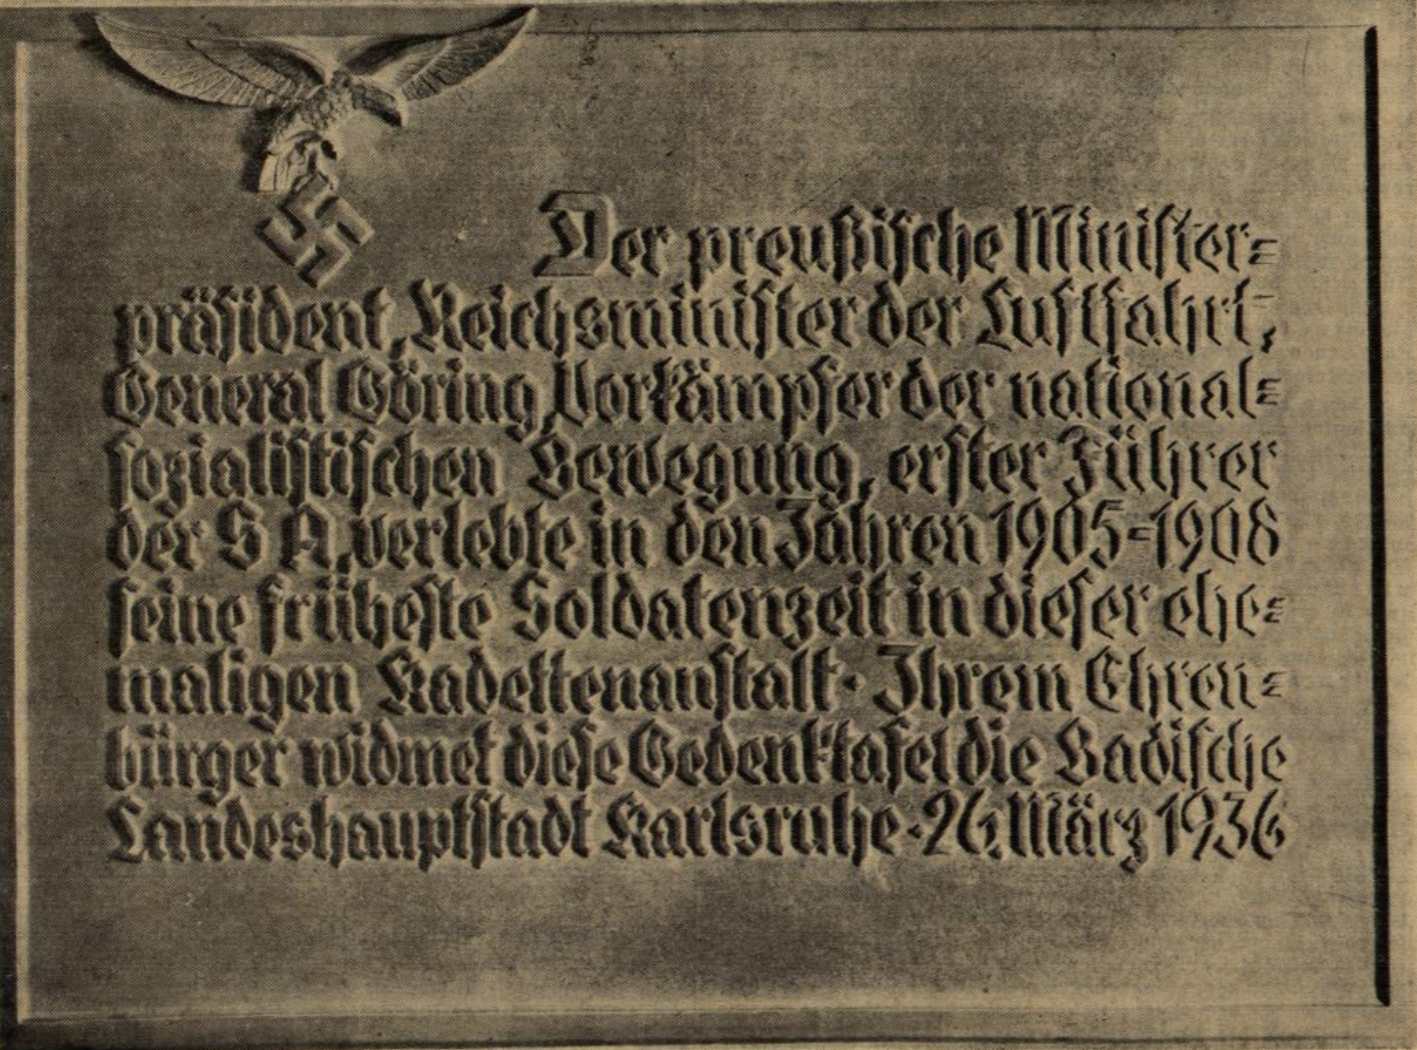 Der preußische Minister=
präsident, Reichsminister der Luftfahrt,
General Göring, Vorkämpfer der national=
sozialistischen Bewegung, erster Führer
der S A, verlebte in den Jahren 1905=1908
seine früheste Soldatenzeit in dieser ehe=
maligen Kadettenanstalt · Ihrem Ehren=
bürger widmet diese Gedenktafel die Badische
Landeshauptstadt Karlsruhe · 26. März 1936